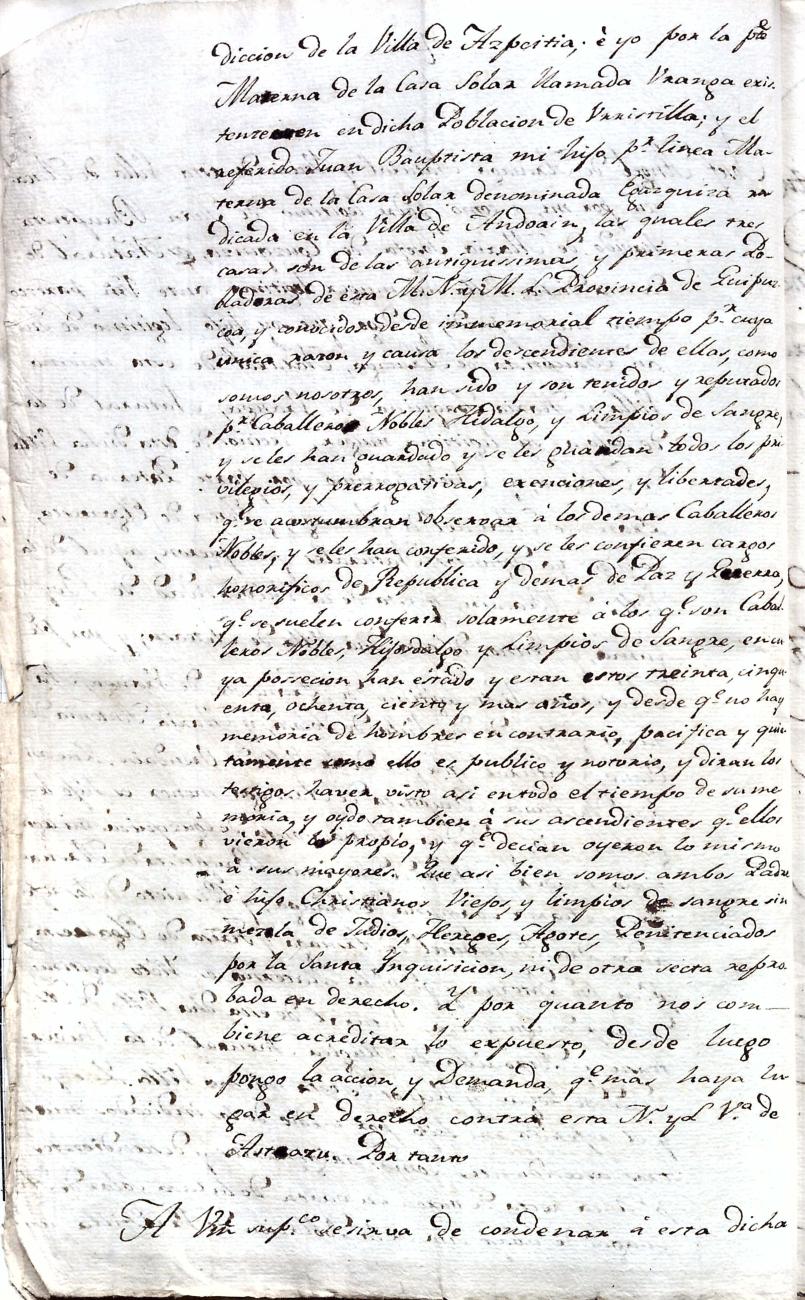 diccion de la Villa de Azpeitia; è yo por la pte
Materna de la Casa Solar llamada Vranga exis-
tente en dicha Poblacion de Vrrestilla; y el
referido Juan Bauptista mi hijo pr. linea Ma-
terna de la Casa Solar denominada Eguzquiza ra
dicada en la Villa de Andoain, las quales tres
casas son de las antiquissimas, y primeras Po-
bladoras de esta M. N. y M. L. Provincia de Guipuz
coa, y conocidas desde inmemorial tiempo pr. cuya
unica razon y causa los descendientes de ellas, como
somos nosotros, han sido y son tenidos y reputados
pr. Caballeros Nobles Hidalgo, y Limpios de Sangre,
y se les han guardado y se les guardan todos los pri
vilegios, y prerrogativas, exenciones, y libertades,
q.e se acostumbran observar à los demas Caballeros
Nobles, y se les han conferido, y se les confieren cargos
honorificos de Republica y demas de Paz y Guerra,
q.e se suelen conferir solamente à los q.e son Caba-
lleros Nobles, Hijosdalgo y Limpios de Sangre, en cu
ya possecion han estado y estan estos treinta, cinqu
enta, ochenta, ciento y mas años, y desde q.e no hay
memoria de hombres en contrario, pacifica y quie
tamente como ello es publico y notorio, y diran los
testigos haver visto asi en todo el tiempo de su me
moria, y oydo tambien à sus ascendientes q.e ellos
vieron lo propio, y q.e decian oyeron lo mismo
à sus mayores. Que asi bien somos ambos Padre
è hijo Christianos Viejos, y limpios de sangre sin
mezcla de Judios, Hereges, Agotes, Penitenciados
por la Santa Ynquisicion, ni de otra secta repro-
bada en derecho. Y por quanto nos com-
biene acreditar lo expuesto, desde luego
pongo la accion, y Demanda, q.e mas haya lu
gar en derecho contra esta N. y L V.a de
Asteazu. Por tanto
A Vm sup.co se sirva de condenar à esta dicha